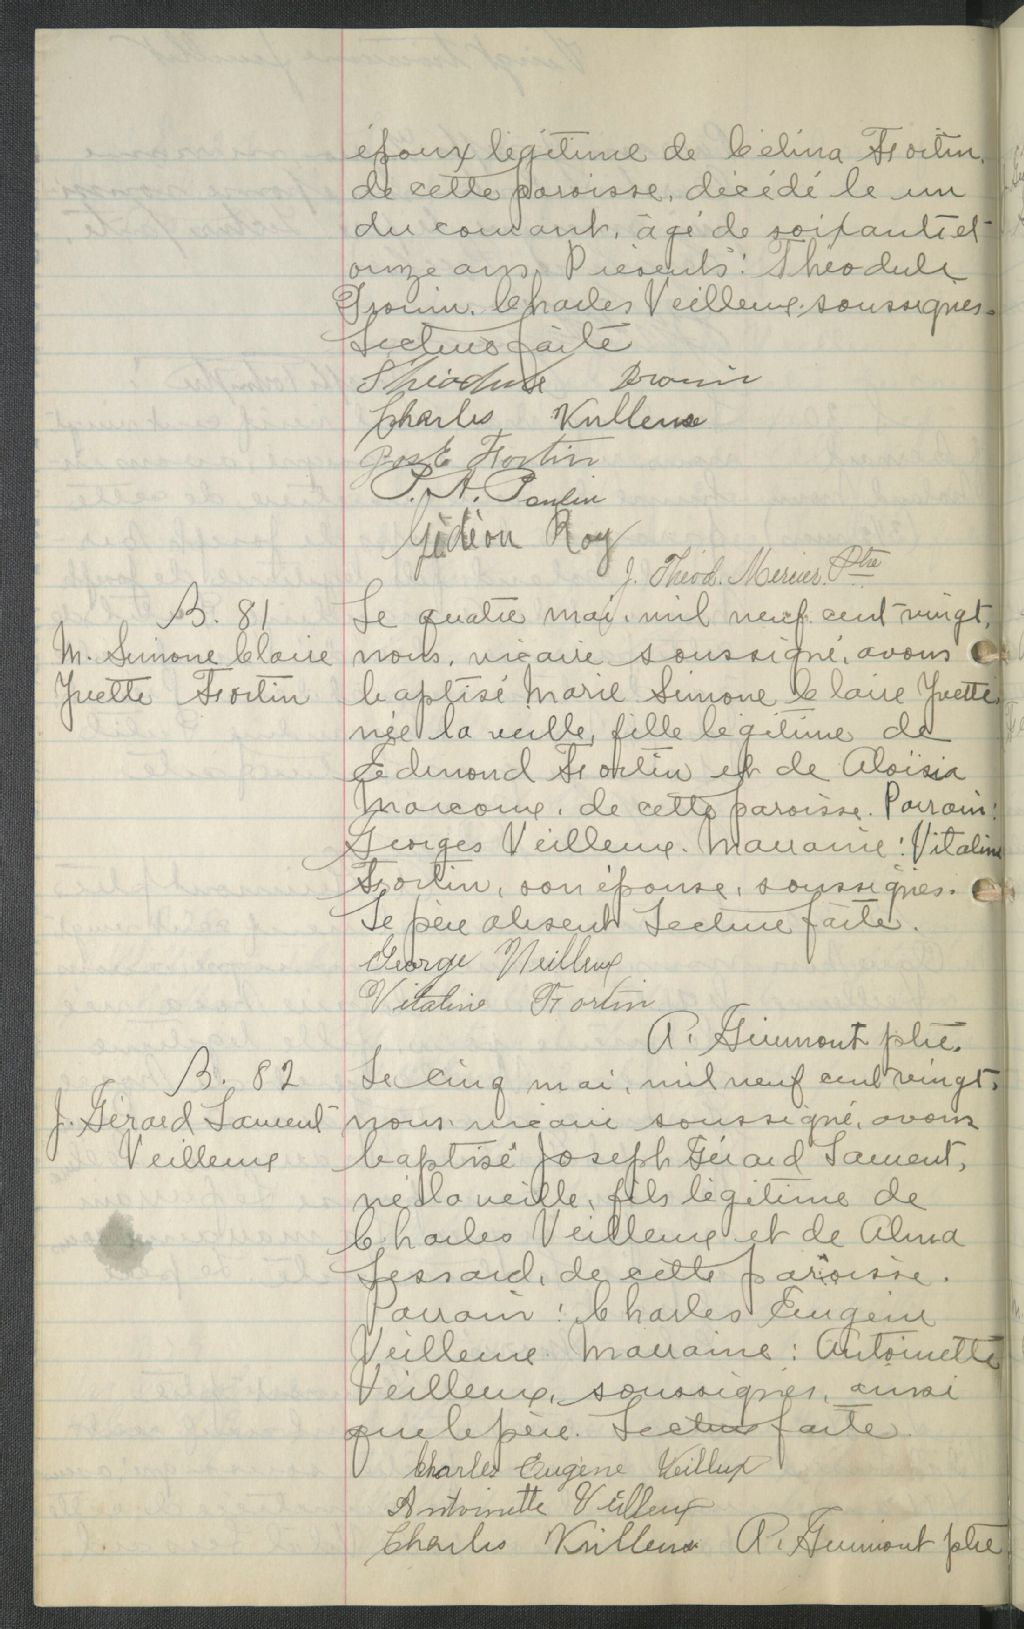 époux légitime de Célina Fortin,
de cette paroisse, décédé le un
du courant, âgé de soixante et
onze ans. Présents: Théodule
Drouin, Charles Veilleux, soussignés.
Lecture faite
Théodule Drouin
Charles Veilleux
Jos E Fortin
P. A. Poulin
Gédéon Roy
J. Théod. Mercier. Ptre
B. 81
M. Simone Claire
Yvette Fortin
Le quatre mai, mil neuf cent vingt,
nous, vicaire soussigné, avons
baptisé Marie Simone Claire Yvette
née la veille, fille légitime de
Edmond Fortin et de Aloisia
Marcoux, de cette paroisse. Parrain:
Georges Veilleux. Marraine: Vitaline
Fortin, son épouse, soussignés.
Le père absent Lecture faite.
George Veilleux
Vitaline Fortin
A. Guimont ptre.
B. 82
J. Gérard Laurent
Veilleux
Le cinq mai, mil neuf cent vingt,
nous, vicaire soussigné, avons
baptisé Joseph Gérard Laurent,
né la veille, fils légitime de
Charles Veilleux et de Alma
Lessard, de cette paroisse.
Parrain: Charles Eugène
Veilleux. Marraine: Antoinette
Veilleux, soussignés, ainsi
que le père. Lecture faite.
Charles Eugène Veilleux
Antoinette Veilleux
Charles Veilleux A. Guimont ptre